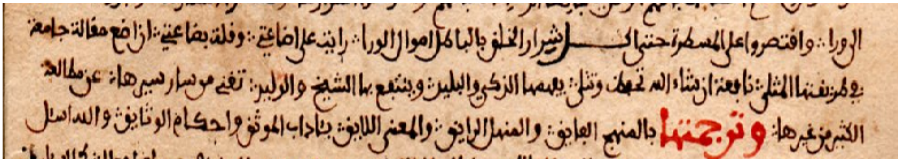 الورا واقتصروا على المسطرة حتى اكل شرار الخلق بالباطل اموال الورا رايت على اضاعتي وقلة بضاعتي ان اضع مقالة جامعة
وطريقتها المثلى نافعة ان شاء الله تعالى وتتلى يفهمها الذكي والبليد وينتفع بها الشيخ والوليد تغني من سار سيرها عن مطالعة
الكثير من غيرها وترجمتها بالمنهج الفايق والمنهل الرايق والمعنى اللايق بئاداب الموثق واحكام الوثايق والله اسئل